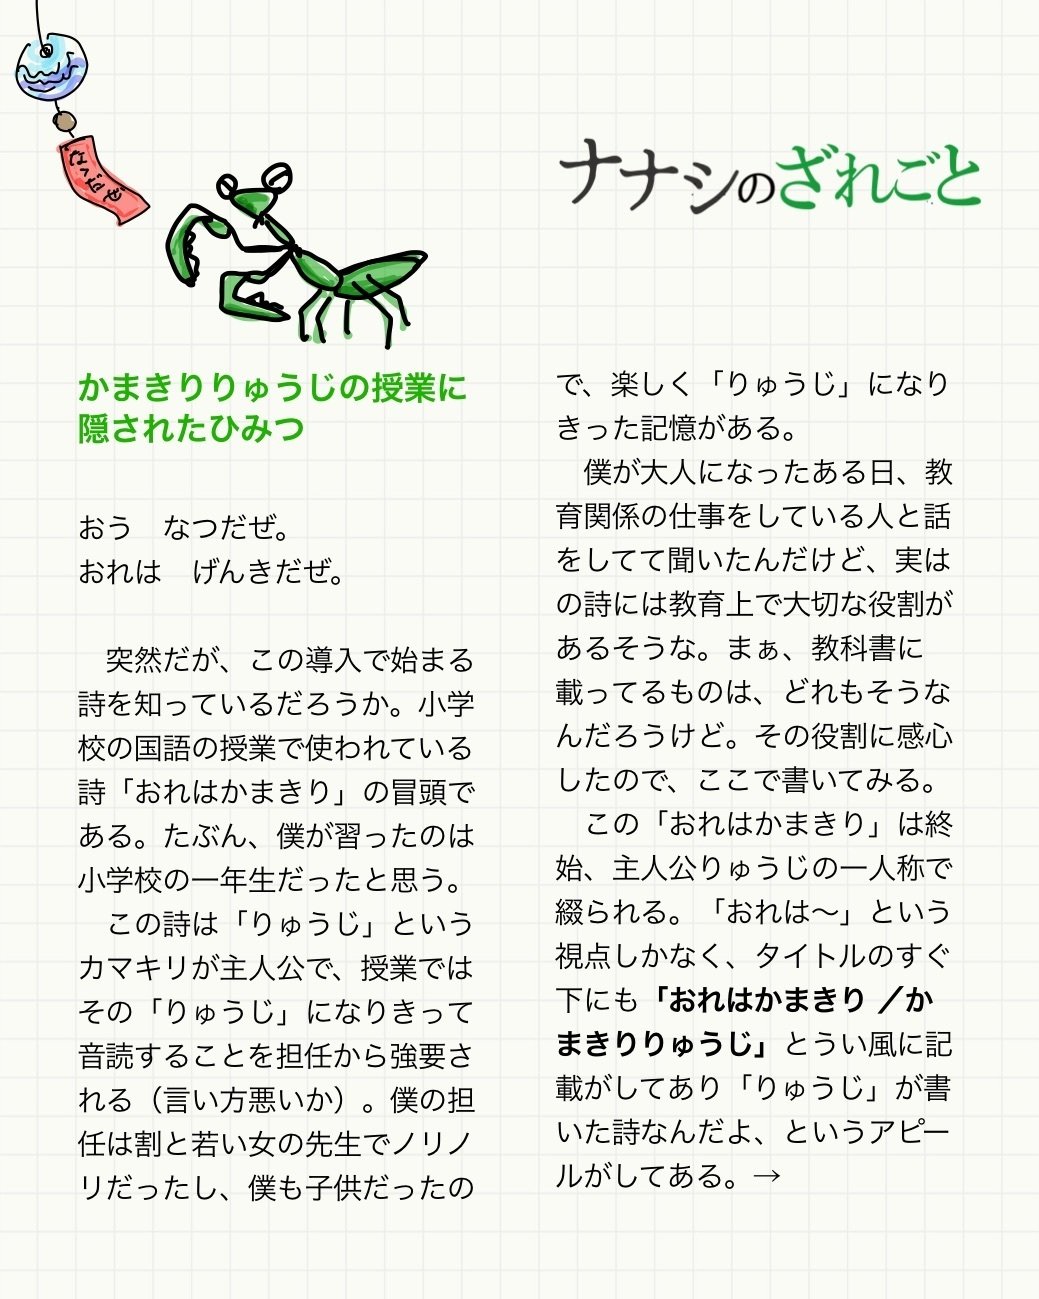 ナナシのざれごと
かまきりりゅうじの授業に
隠されたひみつ
おう　なつだぜ。
おれは　げんきだぜ。
　突然だが、この導入で始まる
詩を知っているだろうか。小学
校の国語の授業で使われている
詩「おれはかまきり」の冒頭で
ある。たぶん、僕が習ったのは
小学校の一年生だったと思う。
　この詩は「りゅうじ」という
カマキリが主人公で、授業では
その「りゅうじ」になりきって
音読することを担任から強要さ
れる（言い方悪いか）。僕の担
任は割と若い女の先生でノリノ
リだったし、僕も子供だったの
で、楽しく「りゅうじ」になり
きった記憶がある。
　僕が大人になったある日、教
育関係の仕事をしている人と話
をしてて聞いたんだけど、実は
の詩には教育上で大切な役割が
あるそうな。まぁ、教科書に
載ってるものは、どれもそうな
んだろうけど。その役割に感心
したので、ここで書いてみる。
　この「おれはかまきり」は終
始、主人公りゅうじの一人称で
綴られる。「おれは～」という
視点しかなく、タイトルのすぐ
下にも「おれはかまきり ／か
まきりりゅうじ」とうい風に記
載がしてあり「りゅうじ」が書
いた詩なんだよ、というアピー
ルがしてある。→